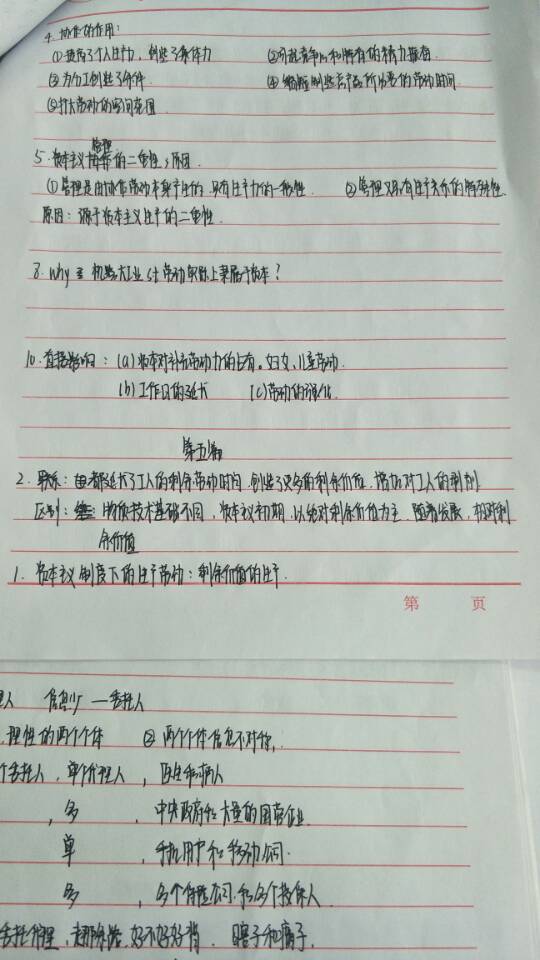 4. 协作的作用：
①提高了个人生产力，创造了集体力 ②引起竞争心和特有的精力振奋
③为分工创造了条件 ④缩短制造产品所必要的劳动时间
⑤扩大劳动的空间范围
管理
5. 资本主义的二重性，原因
①管理是由协作劳动本身产生的，具有生产力的一般性 ②管理又具有生产关系的特殊性
原因：源于资本主义生产的二重性
8. Why 在机器大工业时劳动实际上隶属于资本？
10. 直接影响：(a)资本对补充劳动力的占有。妇女、儿童劳动
(b)工作日的延长 (c)劳动的强化
第五篇
2. 联系：都延长了工人的剩余劳动时间，创造了更多的剩余价值，增加对工人的剥削
区别：物质技术基础不同，资本主义初期，以绝对剩余价值为主，随着发展，相对剩
余价值
1. 资本主义制度下的生产劳动：剩余价值的生产
第 页
人 信息少—委托人
理性的两个个体 ②两个个体信息不对称，
个委托人，单个代理人，医生和病人
，多 ，中央政府和大量的国营企业
单 ，手机用户和移动公司
多 ，多个保险公司和多个投保人
委托代理，好不好 瞎子和